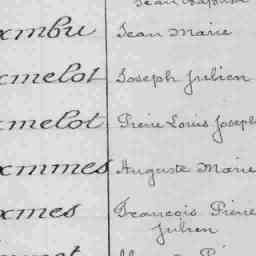 Jean Baptiste
xmbu Jean Marie
xmelot Joseph Julien
xmelot Pierre Louis Joseph
xmmes Auguste Marie
xmes François Pierre
Julien